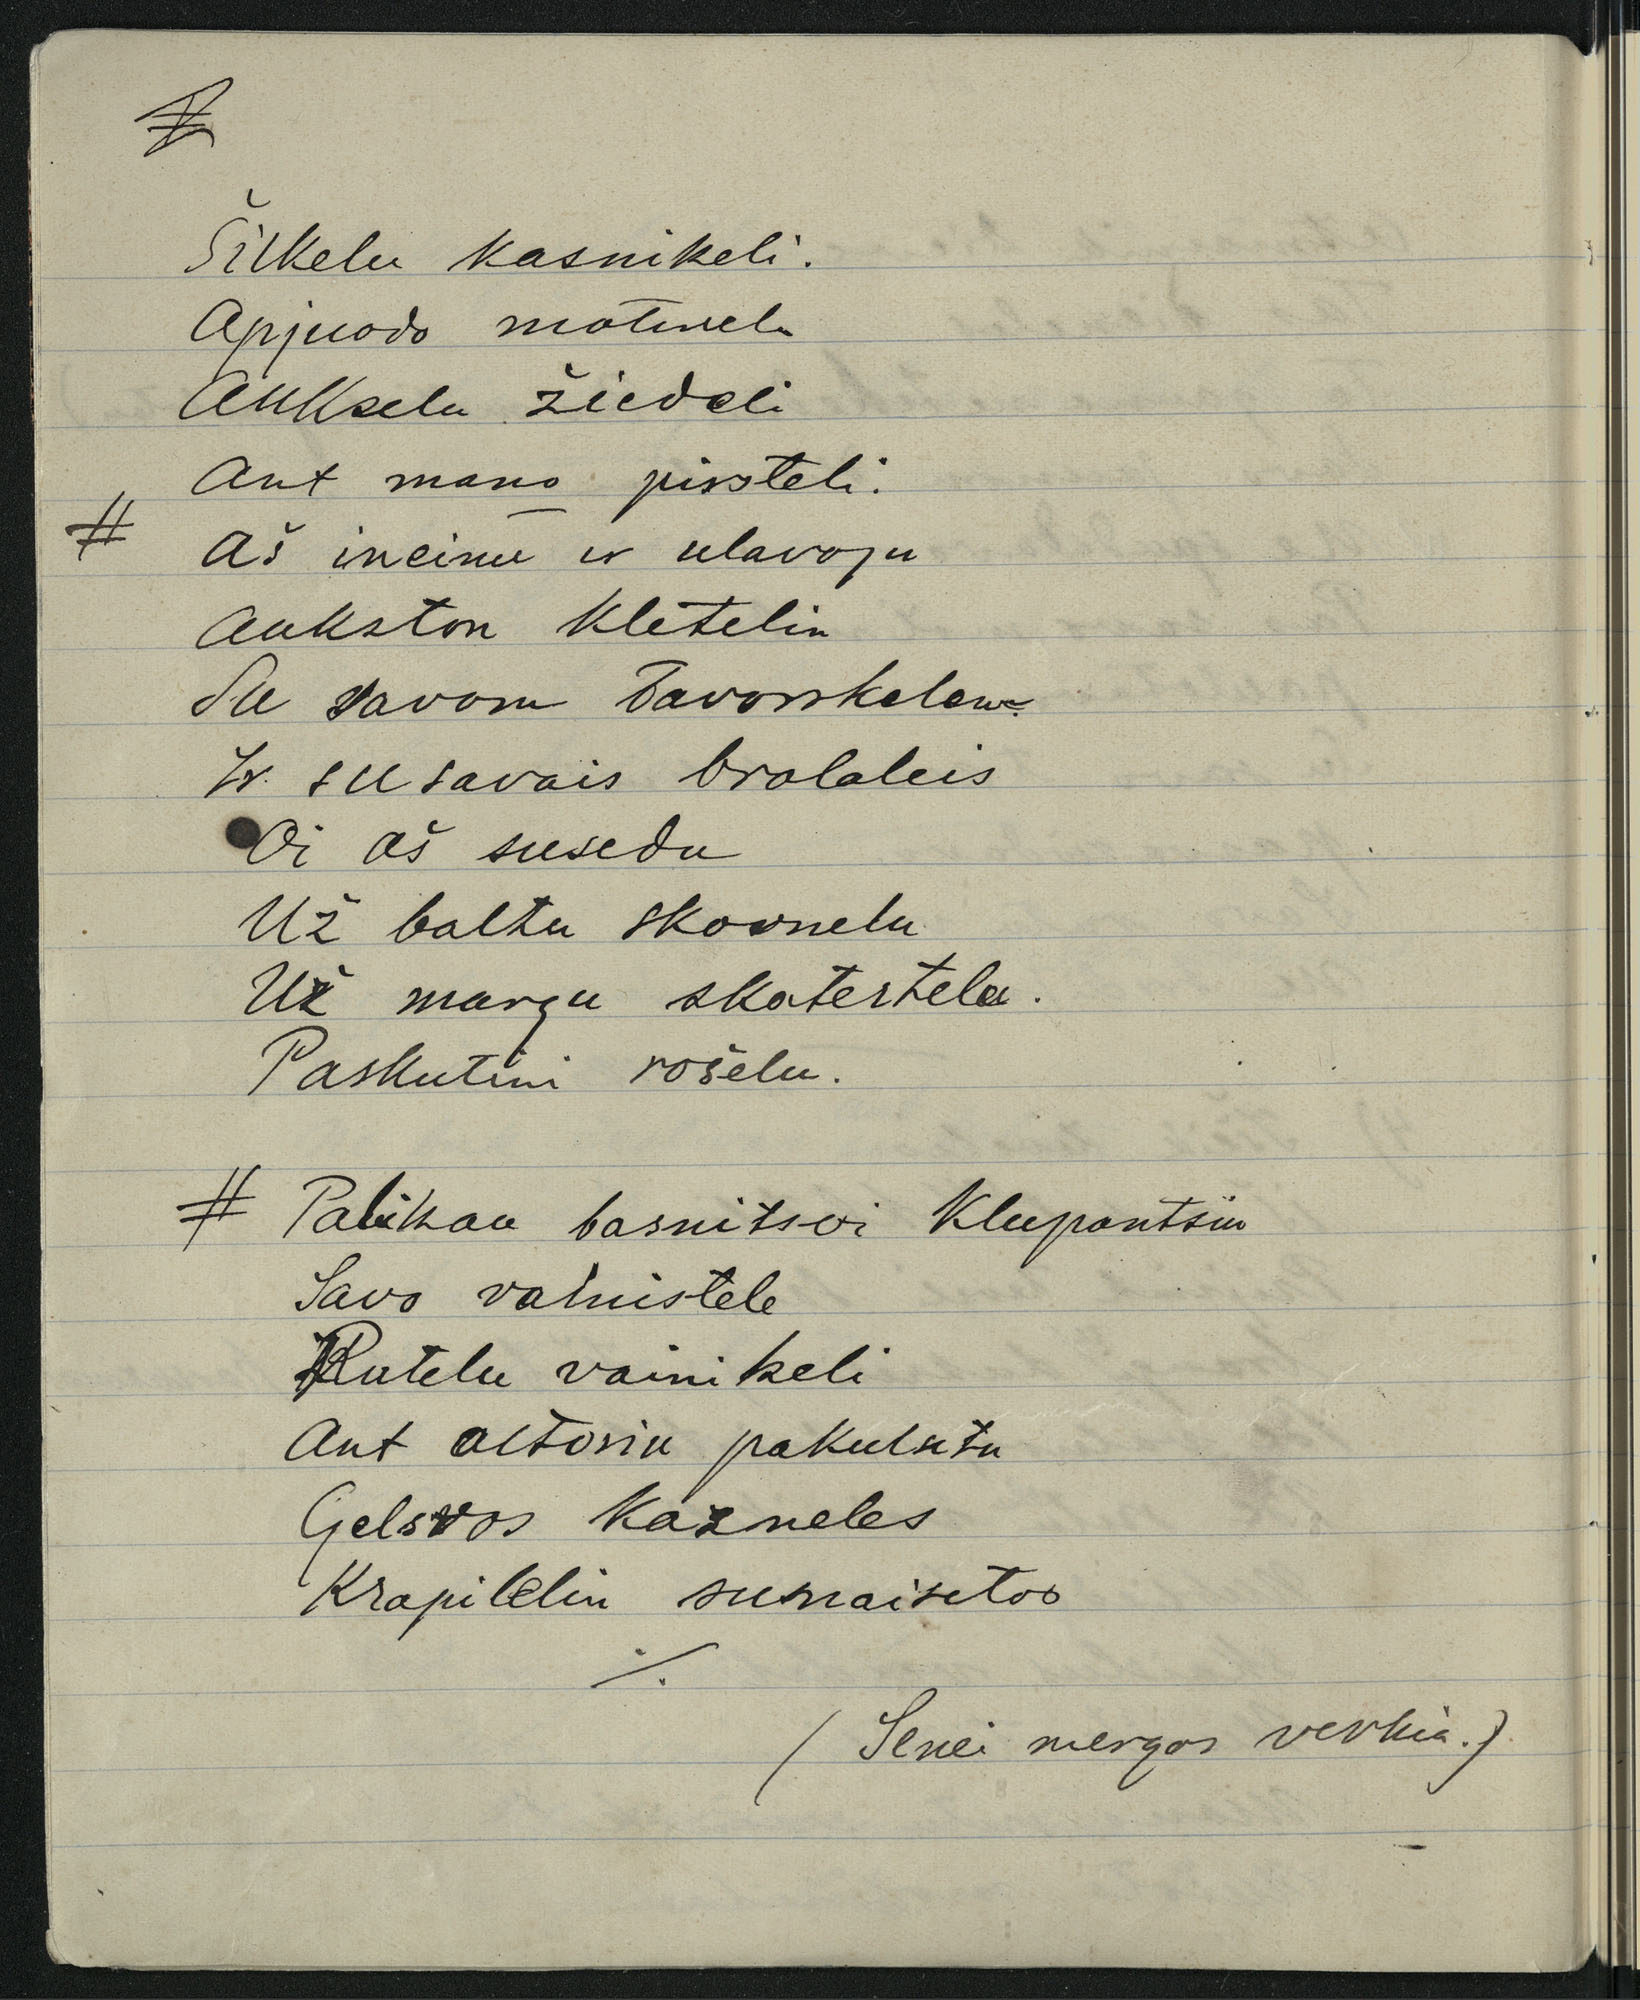 Šilkelu kasnikeli.
Apjuodo
Aukselu žiedeli
Ant mano pirsteli.
# Aš ineinu ir ulavoju
Aukston Kletelin
Su savom Tavorskelem.
Ir su savais brolaleis
Oi aš susedu
Už baltu skomnelu
Už margu skatertelu.
Paskutini rošelu.
# Palikau basnitsoi Klupantsiu
Savo vainistele
Rutelu vainikeli
Ant altoriu pakulsitu
Gelsvos kazneles
Krapilelin sumaisitos
./.
( Senei mergos verkia.)